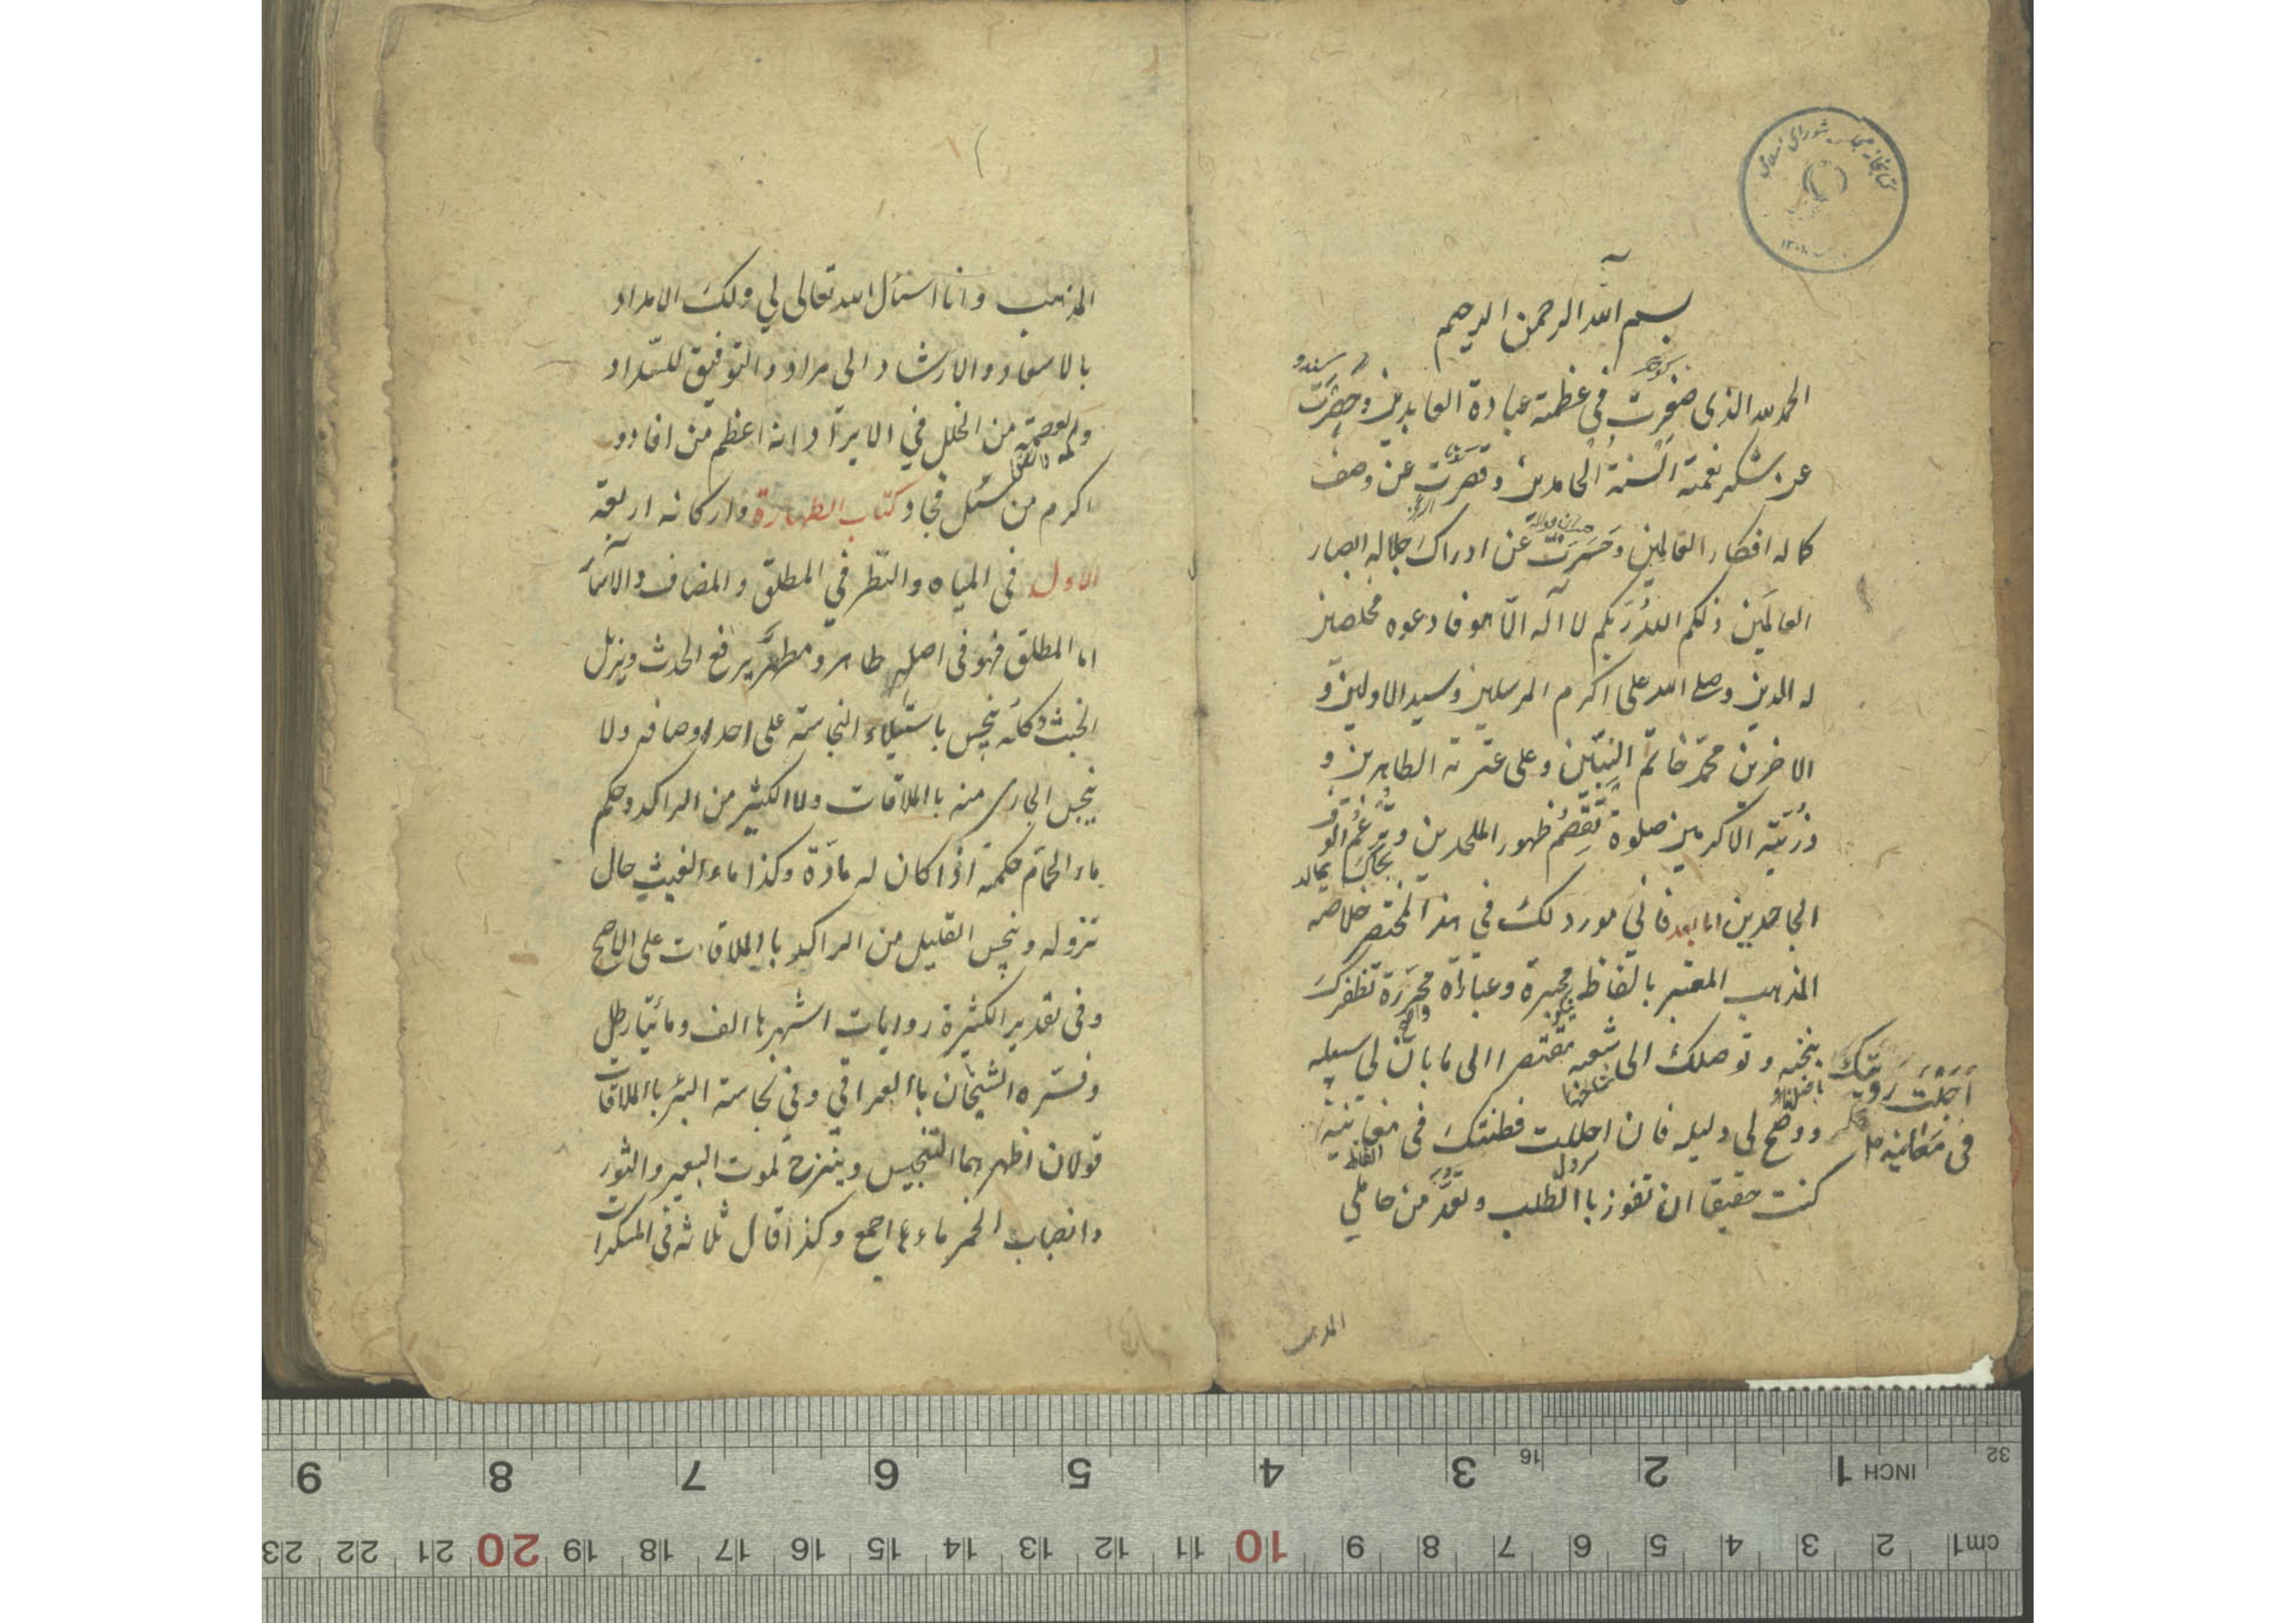 كتابخانه مجلس شورای اسلامی
بسم الله الرحمن الرحيم
الحمد لله الذی صغرت فی عظمته عبادة العابدين وحصرت
عن شكر نعمته السنة الحامدين وقصرت عن وصف
كماله افكار العالمين وحسرت عن ادراك جلاله ابصار
العالمين ذلكم الله ربكم لا اله الّا هو فادعوه مخلصين
له الدين وصلى الله على اكرم المرسلين وسيد الاولين و
الاخرين محمّد خاتم النبيّين وعلى عترته الطاهرين و
ذريّته الاكرمين صلوة تقصم ظهور الملحدين وترغم انوف
الجاحدين اما بعد فانی مورد لك فی هذا المختصر خلاصة
المذهب المعتبر بالفاظ محبرة وعباراة محرّرة تظفرك
بنخبه وتوصلك الى شعبه مقتصرا الى ما بان لی سبيله
ووضح لی دليله فان احللت فطنتك فی مغانيه
اجلت رويتك
فی معانيه
كنت حقيقا ان تفوز باالطلب وتعدّ من حاملی
المذهب
المذهب وانا اسئال الله تعالى لی ولك الامداد
بالاسعاد والارشاد الى مراد والتوفيق للسّداد
والعصمة من الخلل فی الايراد انه اعظم من افاد و
اكرم من سئل فجاد كتاب الطهارة واركانه اربعة
الاول فی المياه والنظر فی المطلق والمضاف والاسآر
اما المطلق فهو فی اصله طاهر ومطهّر يرفع الحدث ويزيل
الخبث وكلّه ينجس باستيلاء النجاسة على احد اوصافه ولا
ينجس الجاری منه باالملاقات ولا الكثير من الراكد وحكم
ماء الحمّام حكمه اذا كان له مادّة وكذا ماء الغيث حال
نزوله وينجس القليل من الراكد باالملاقات على الاصح
وفی تقدير الكثيرة روايات اشهرها الف ومأتا رطل
وفسّره الشيخان باالعراقی وفی نجاسة البئر باالملاقات
قولان اظهرهما التنجيس وينزح لموت البعير والثور
وانصباب الخمر ماءها اجمع وكذا قال ثلاثه فی المسكرات
9 8 7 6 5 4 3 16 2 1 INCH 32
23 22 21 20 19 18 17 16 15 14 13 12 11 10 9 8 7 6 5 4 3 2 cm1